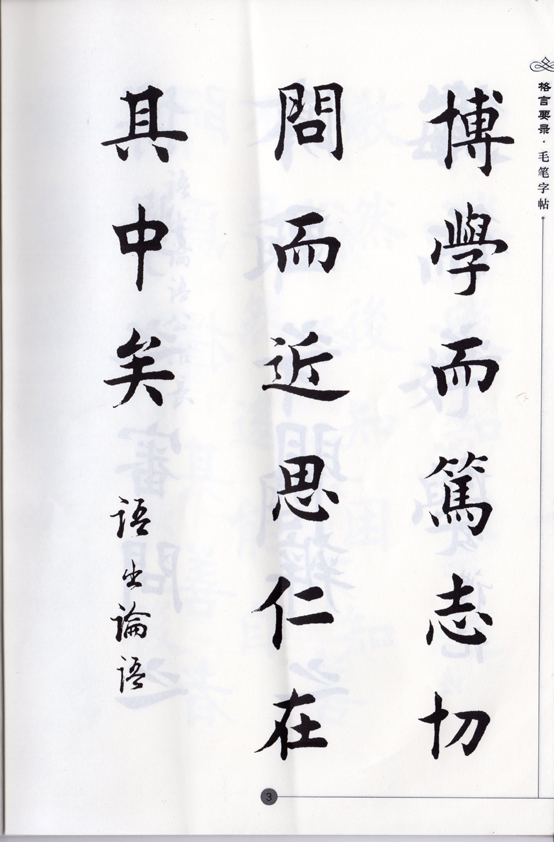 博學而篤志切
問而近思仁在
其中矣
語出論語
格言要录·毛笔字帖
3